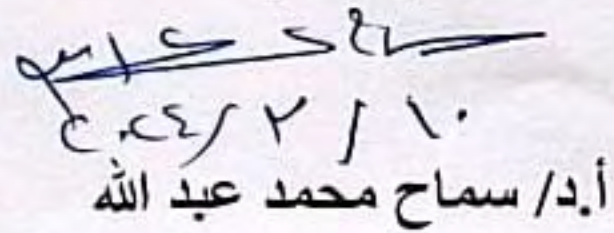 ٢٠٢٤/٢/١٠
أ.د/ سماح محمد عبد الله